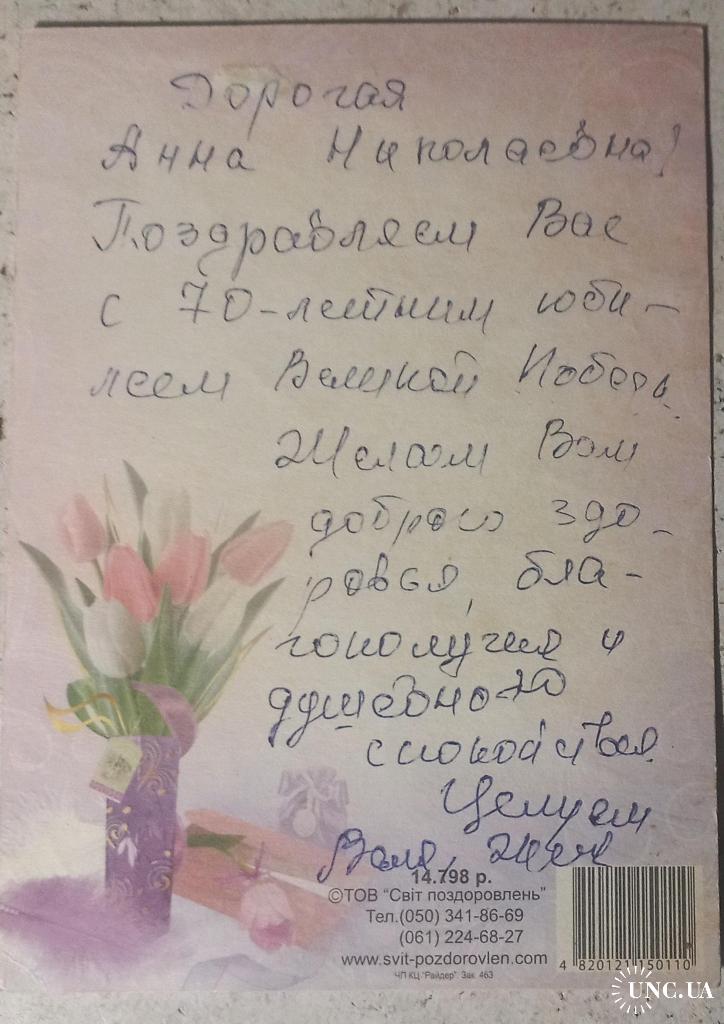 Дорогая
Анна Николаевна!
Поздравляем Вас
с 70-летним юби-
леем Великой Победы.
Желаем Вам
доброго здо-
ровья, бла-
гополучия и
душевного
спокойствия.
Целуем
Валя, Женя
14.798 р.
©ТОВ "Світ поздоровлень"
Тел.(050) 341-86-69
(061) 224-68-27
www.svit-pozdorovlen.com
ЧП КЦ "Райдер". Зак. 463
4 820121 150110
UNC.UA